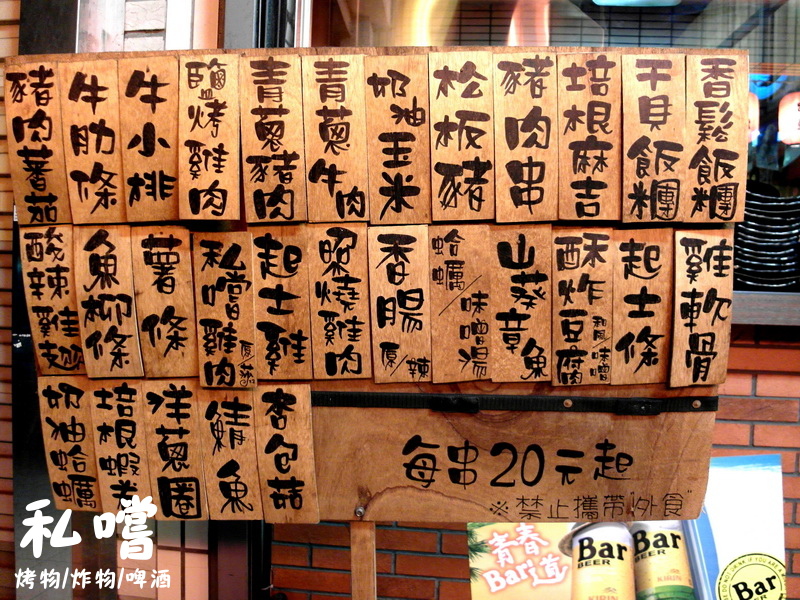 豬肉蕃茄
牛肋條
牛小排
鹽烤雞肉
青蔥豬肉
青蔥牛肉
奶油玉米
松板豬
豬肉串
培根麻吉
干貝飯糰
香鬆飯糰
酸辣雞翅
魚柳條
薯條
私嚐雞肉
起士雞
照燒雞肉
香腸原/辣
蛤蠣/味噌湯
山葵章魚
酥炸豆腐和風/味噌
起士條
雞軟骨
奶油蛤蠣
培根蝦卷
洋蔥圈
鯖魚
杏包菇
每串20元起
※禁止攜帶"外食"
私嚐
烤物/炸物/啤酒
青春
Bar道
Bar
BEER
KIRIN
Bar
BEER
KIRIN
Bar
BEER